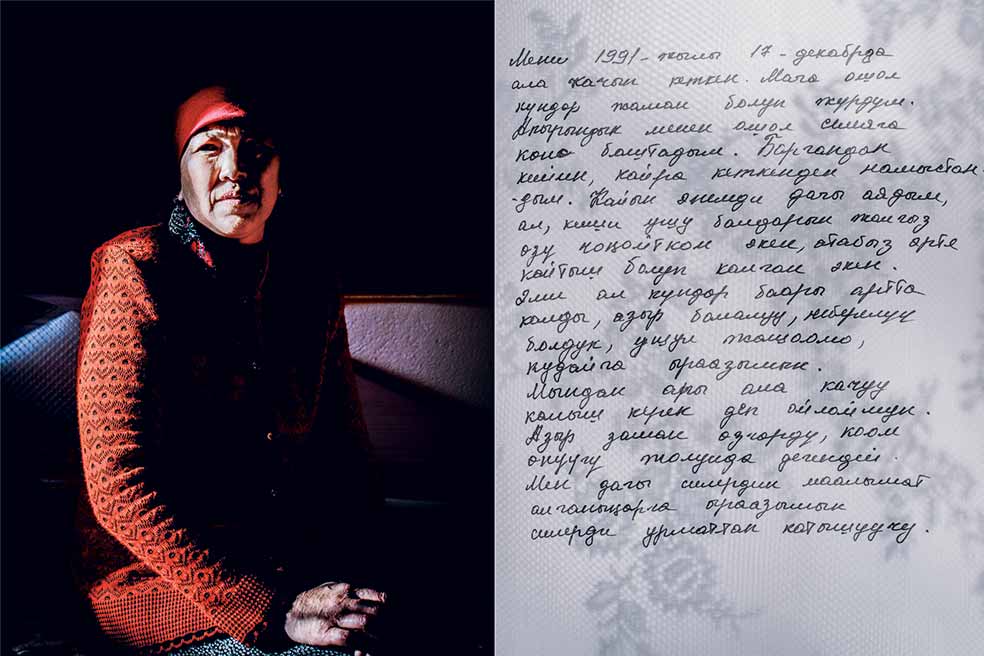 Мени 1991-жылы 17-декабрда
ала качып кеткен. Мага ошол
күндөр жаман болуп жүрдүм.
Акырындык менен ошол үй-бүлөгө
көнө баштадым. Баргандан
кийин, кайра кеткенден намыстан-
-дым. Кайын энемди дагы аядым,
ал, киши ушу балдарын жалгыз
өзү чоңойткон экен, атабыз эрте
кайтыш болуп калган экен.
Эми ал күндөр баары артта
калды, азыр балалуу, неберелүү
болдук, ушул жашообо,
кудайга ыраазымын.
Мындан ары ала качуу
калыш керек деп ойлоймун.
Азыр заман өзгөрдү, коом
өнүгүү жолунда дегендей.
Мен дагы силердин маалымат
алганыңарга ыраазымын
силерди урматтап катышуучу.